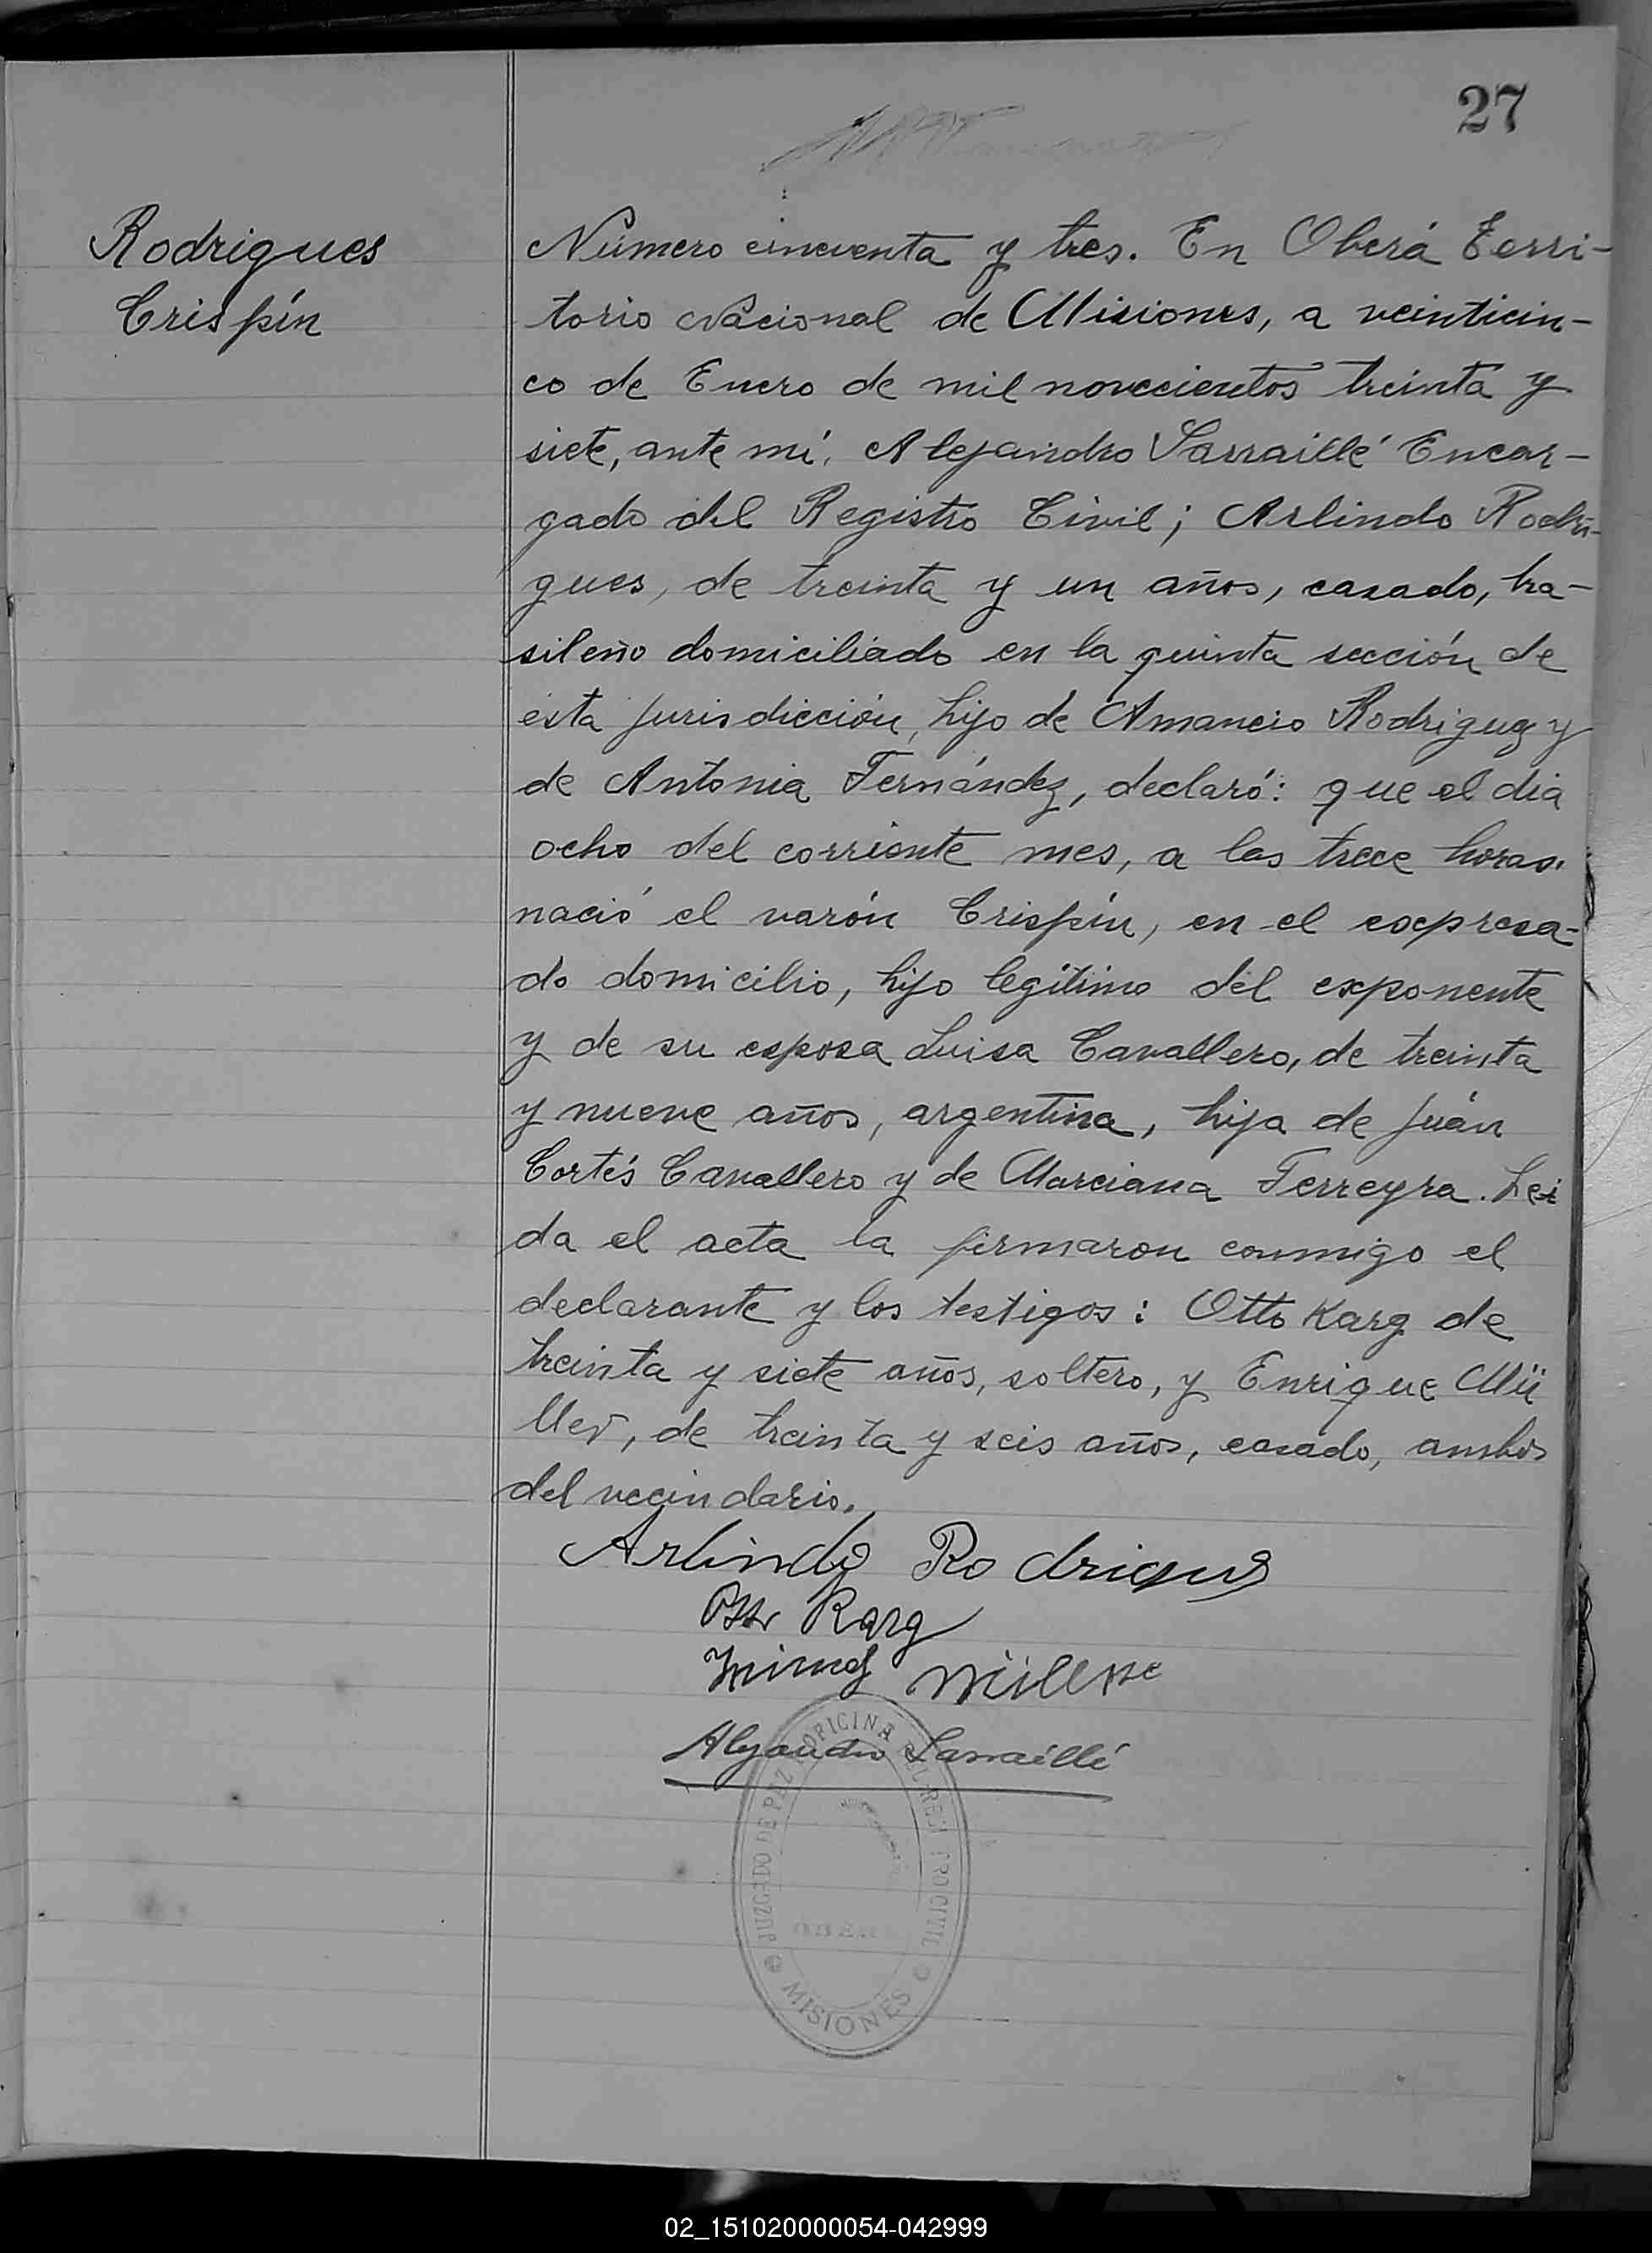 27
Rodrigues
Crispín
Número cincuenta y tres. En Oberá Terri-
torio Nacional de Misiones, a veinticin-
co de Enero de mil novecientos treinta y
siete, ante mí, Alejandro Sarraillé Encar-
gado del Registro Civil; Arlindo Rodri-
gues, de treinta y un años, casado, bra-
sileño domiciliado en la quinta sección de
esta jurisdicción, hijo de Amancio Rodriguez y
de Antonia Fernández, declaró: que el dia
ocho del corriente mes, a las trece horas.
nació el varón Crispín, en el expresa-
do domicilio, hijo legítimo del exponente
y de su esposa Luisa Cavallero, de treinta
y nueve años, argentina, hija de Juán
Cortés Cavallero y de Marciana Ferreyra. Lei
da el acta la firmaron conmigo el
declarante y los testigos: Otto Karg de
treinta y siete años, soltero, y Enrique Mü
ller, de treinta y seis años, casado, ambos
del vecindario.
Arlindo Rodrigues
Otto Karg
Müller
Alejandro Sarraillé
JUZGADO DE PAZ Y OFICINA DEL REGISTRO CIVIL
MISIONES
02_151020000054-042999